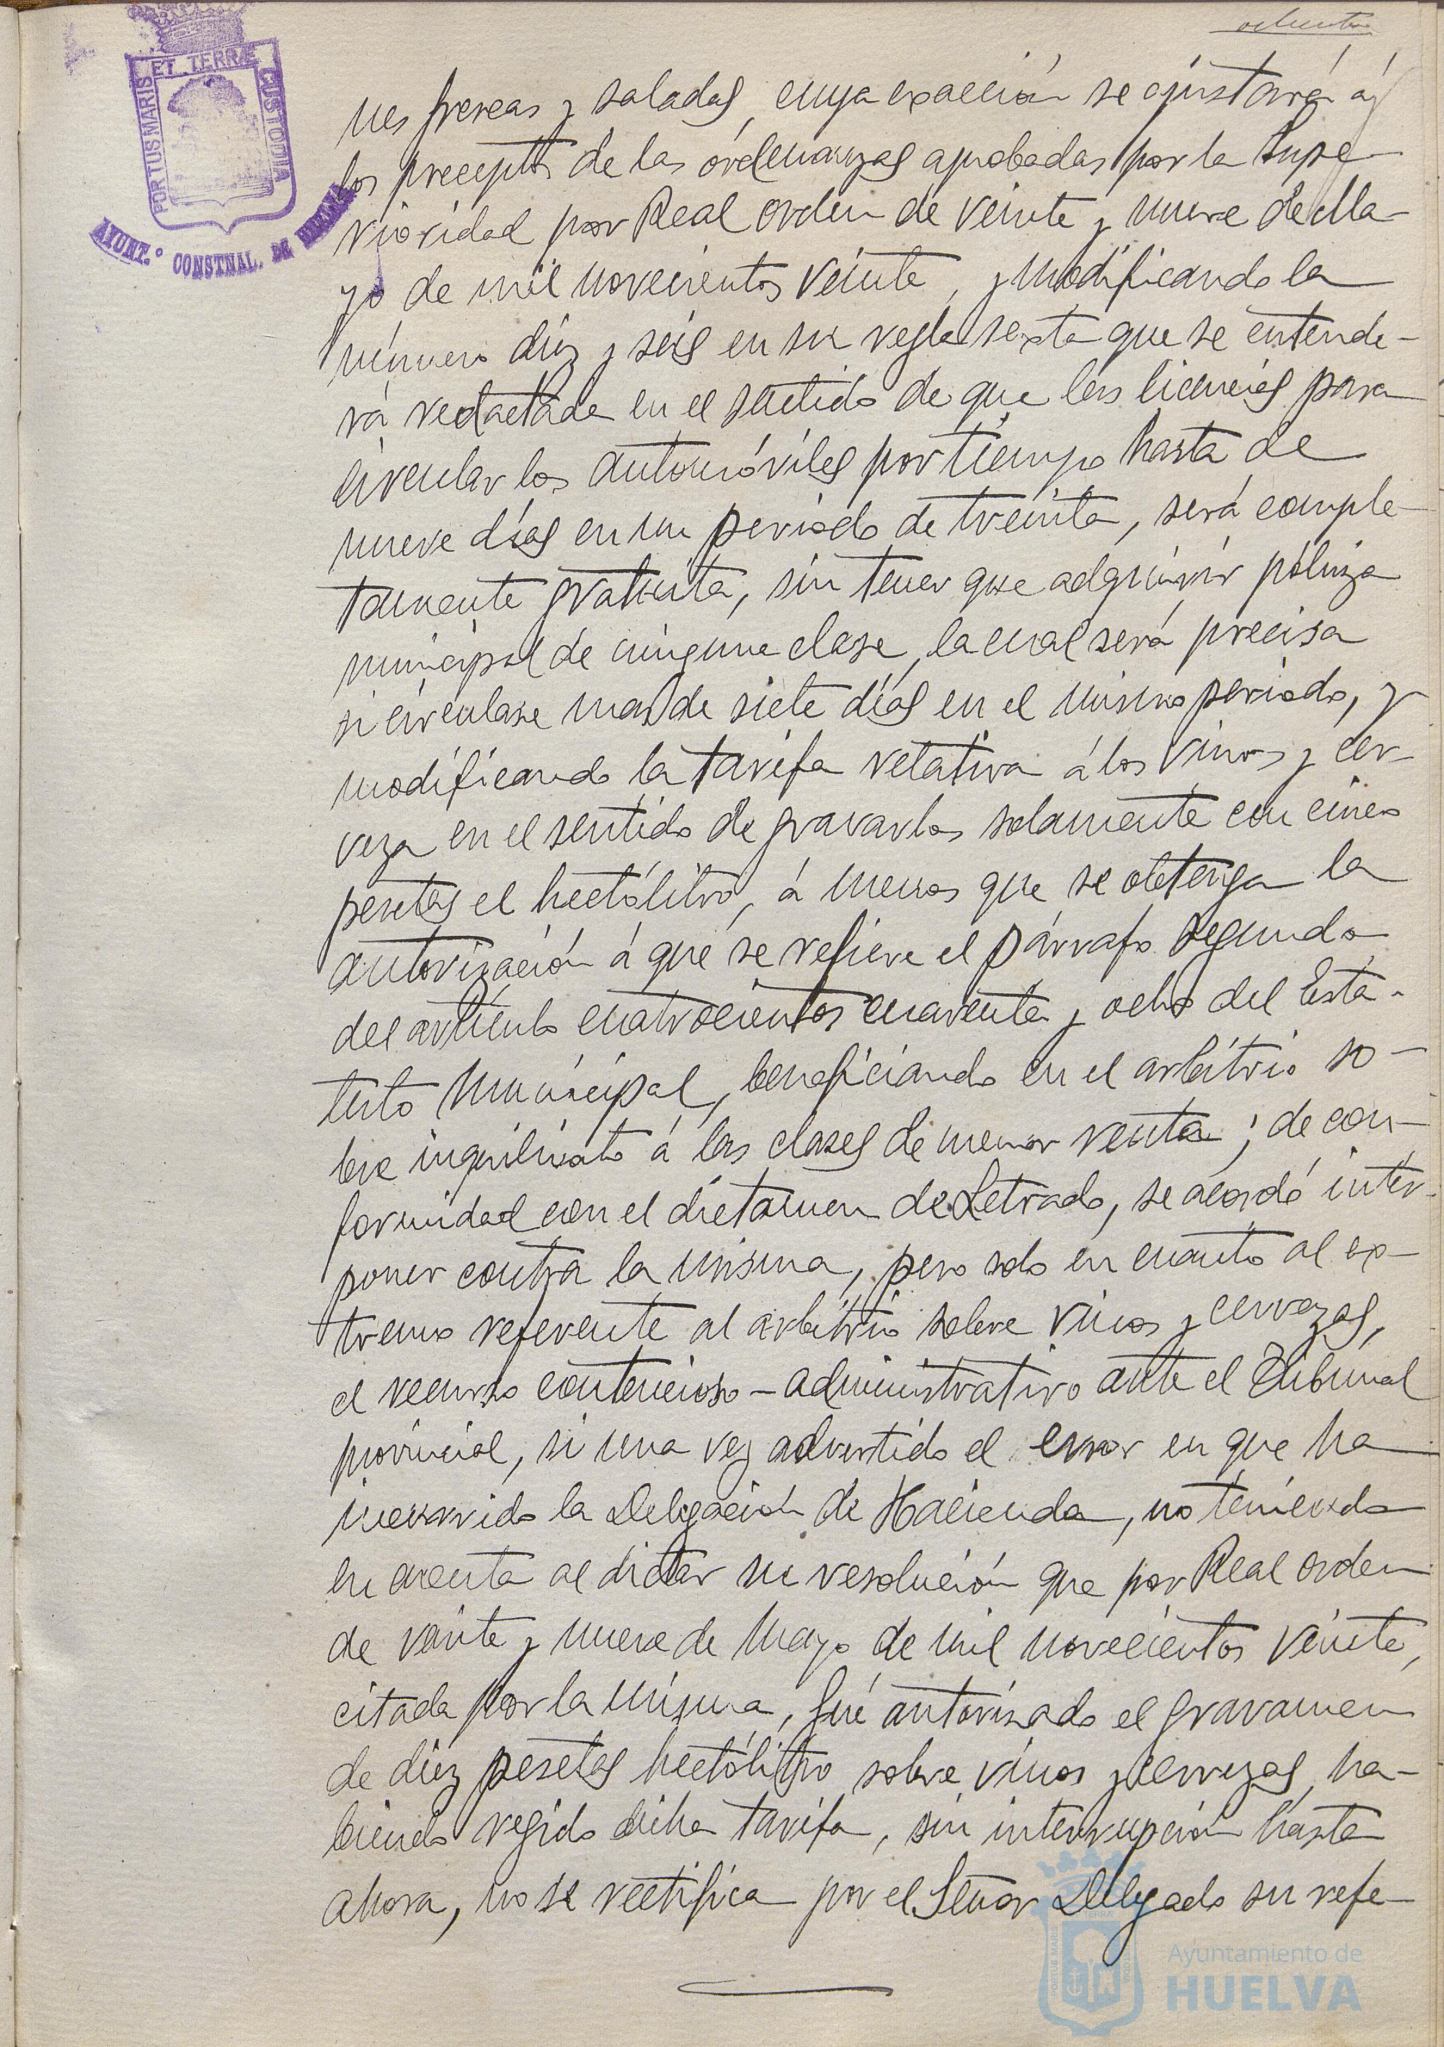 ochenta
PORTUS MARIS ET TERRÆ CUSTODIA
AYUNT.º CONSTNAL. DE HUELVA
nes frescas y saladas, cuya exacción se ajustará á
los preceptos de las ordenanzas aprobadas por la Supe-
rioridad por Real orden de veinte y nueve de Ma-
yo de mil novecientos veinte, y modificando la
número diez y seis en su regla sexta que se entende-
rá redactada en el sentido de que las licencias para
circular los automóviles por tiempo hasta de
nueve días en un periodo de treinta, será comple-
tamente gratuita, sin tener que adquirir póliza
municipal de ninguna clase, la cual será precisa
si circulase mas de siete días en el mismo periodo, y
modificando la tarifa relativa á los vinos y cer-
veza en el sentido de gravarlos solamente con cinco
pesetas el hectólitro, á menos que se obtenga la
autorización á que se refiere el párrafo segundo
del artículo cuatrocientos cuarenta y ocho del Esta-
tuto Municipal, beneficiando en el arbitrio so-
bre inquilinato á las clases de menor renta; de con-
formidad con el dictamen de Letrado, se acordó inter-
poner contra la misma, pero solo en cuanto al ex-
tremo referente al arbitrio sobre vinos y cervezas,
el recurso contencioso-administrativo ante el Tribunal
provincial, si una vez advertido el error en que ha
incurrido la Delegación de Hacienda, no teniendo
en cuenta al dictar su resolución que por Real orden
de veinte y nueve de Mayo de mil novecientos veinte,
citada por la misma, fué autorizado el gravamen
de diez pesetas hectólitro sobre vinos y cervezas, ha-
biendo regido dicha tarifa, sin interrupción hasta
ahora, no se rectifica por el Señor Delegado su refe-
Ayuntamiento de
HUELVA